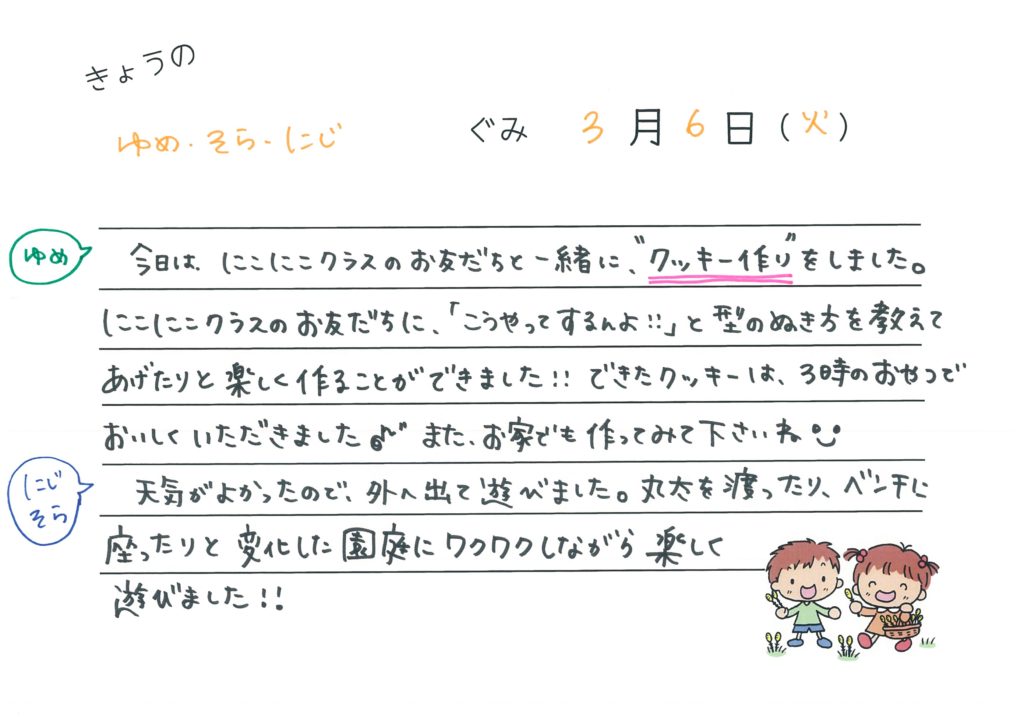 きょうの
ゆめ・そら・にじ ぐみ 3月6日(火)
ゆめ
今日は、にこにこクラスのお友だちと一緒に、"クッキー作り"をしました。
にこにこクラスのお友だちに、「こうやってするんよ!!」と型のぬき方を教えて
あげたりと楽しく作ることができました!! できたクッキーは、3時のおやつで
おいしくいただきました♪ また、お家でも作ってみて下さいね
にじ
そら
天気がよかったので、外へ出て遊びました。丸太を渡ったり、ベンチに
座ったりと変化した園庭にワクワクしながら楽しく
遊びました!!